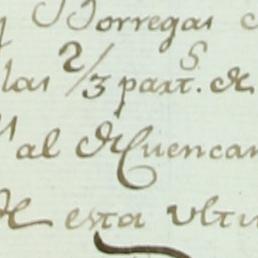 y Borregas
las 2/3 part.s de
al de Cuencan
de esta ulti